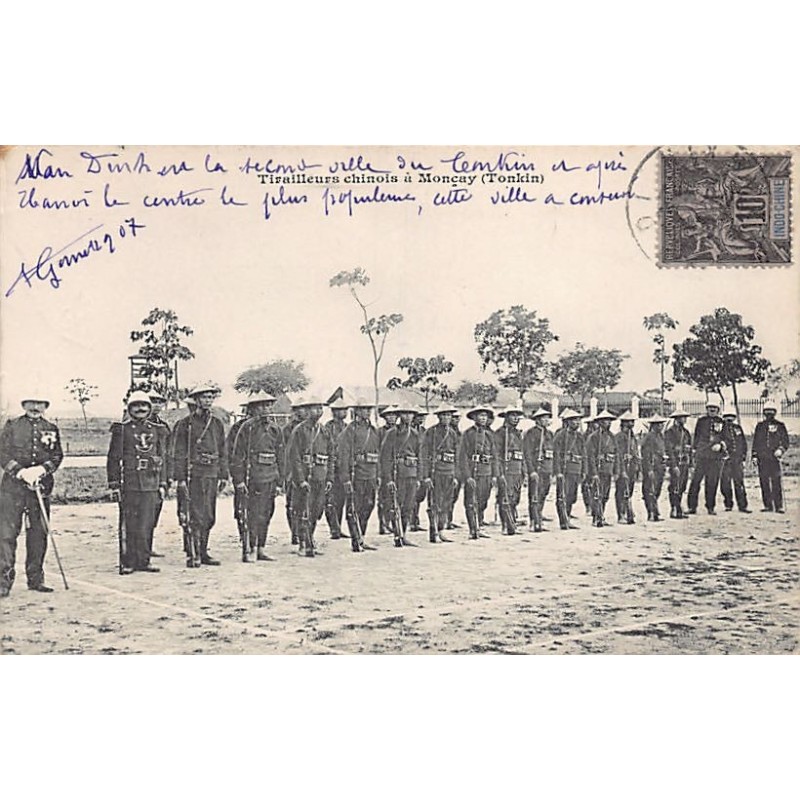 Nam Dinh est la second ville du Tonkin et après
Tirailleurs chinois à Moncay (Tonkin)
Hanoï le centre le plus populeux, cette ville a
07
REPUBLIQUE FRANÇAISE
10
INDO-CHINE